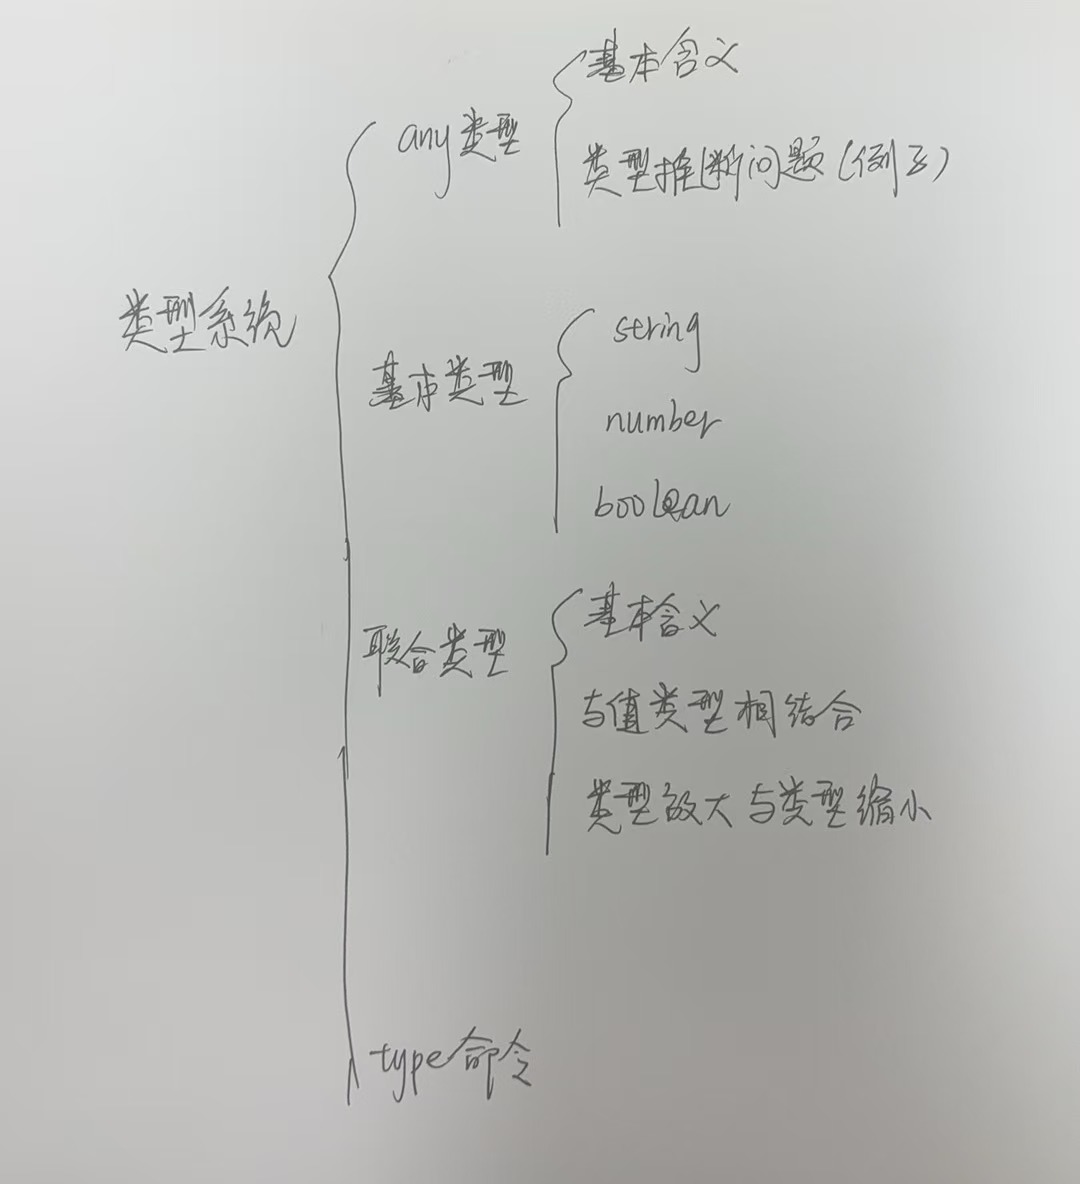 类型系统
any类型
基本含义
类型推断问题(例子)
基本类型
string
number
boolean
联合类型
基本含义
与值类型相结合
类型放大与类型缩小
type命令